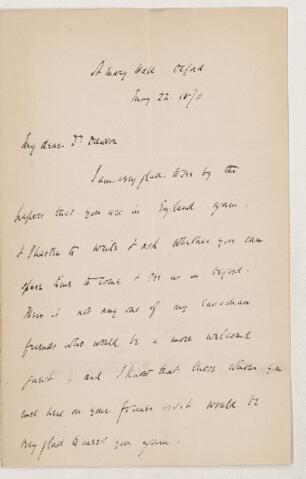 St Mary Hall Oxford
May 22. 1870
My dear Dr Dawson
I am very glad to see by the
papers that you are in England again,
& I hasten to write & ask whether you can
spare time to come & see us in Oxford.
There is not any one of my Canadian
friends who would be a more welcome
guest, and I know that those whom you
met here on your former visit would be
very glad to meet you again.